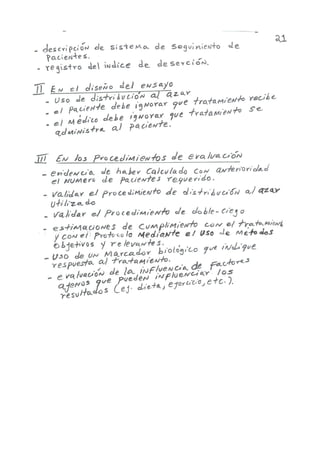 21
- descripción de sistema de seguimiento de
pacientes.
- registro del índice de deserción.
II En el diseño del ensayo
- Uso de distribución al azar
- el paciente debe ignorar que tratamiento recibe
- el Médico debe ignorar que tratamiento se
administra al paciente.
III En los Procedimientos de evaluación
- evidencia de haber calculado con anterioridad
el número de pacientes requerido.
- Validar el procedimiento de distribución al azar
utilizado
- Validar el procedimiento de doble-ciego
- estimaciones de cumplimiento con el tratamiento
y con el protocolo mediante el uso de métodos
objetivos y relevantes.
- Uso de un marcador biológico que indique
respuesta al tratamiento.
- evaluación de la influencia de factores
ajenos que pueden influenciar los
resultados (ej. dieta, ejercicio, etc.).